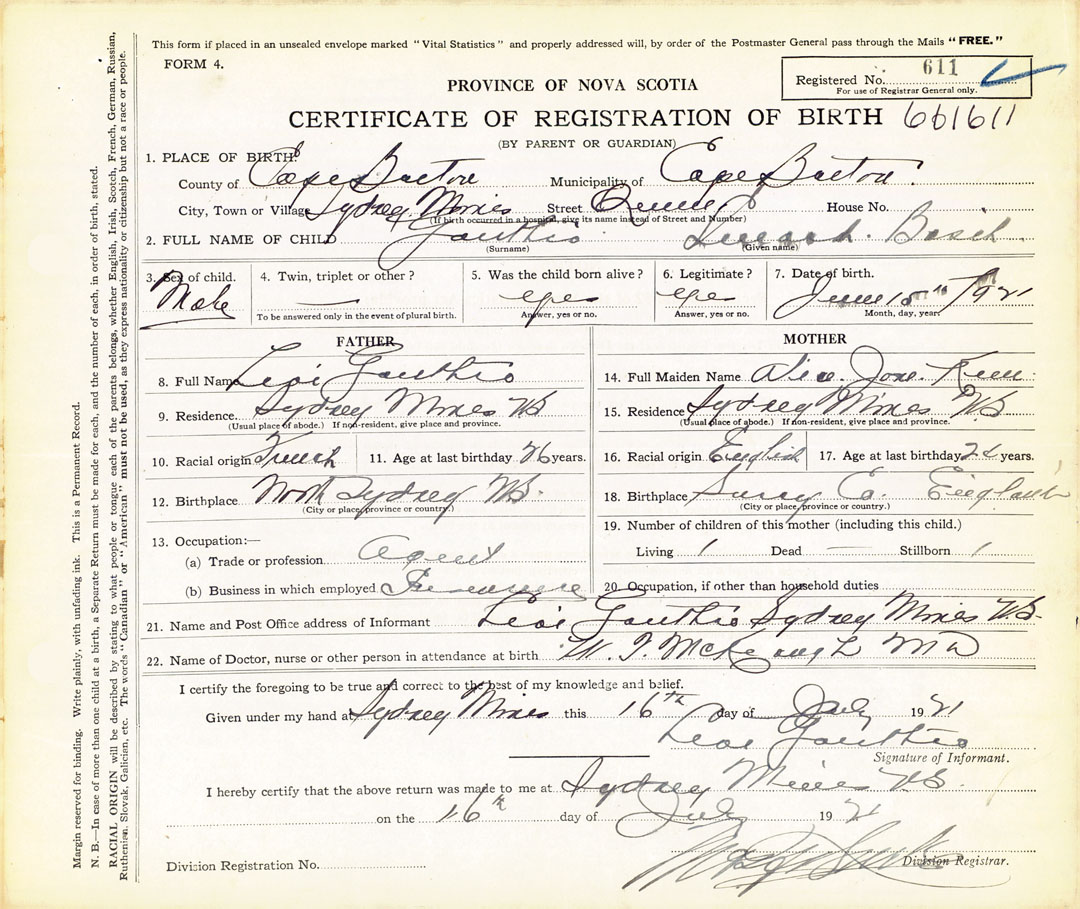 This form if placed in an unsealed envelope marked "Vital Statistics" and properly addressed will, by order of the Postmaster General pass through the Mails "FREE."
FORM 4.
Registered No. 611
For use of Registrar General only.
PROVINCE OF NOVA SCOTIA
CERTIFICATE OF REGISTRATION OF BIRTH 661611
(BY PARENT OR GUARDIAN)
1. PLACE OF BIRTH:
County of Cape Breton Municipality of Cape Breton
City, Town or Village Sydney Mines Street Queen House No.
(If birth occurred in a hospital, give its name instead of Street and Number)
2. FULL NAME OF CHILD Gouthro
(Surname) (Given name)
3. Sex of child. 4. Twin, triplet or other? 5. Was the child born alive? 6. Legitimate? 7. Date of birth.
Male — yes yes June 15th 1921
To be answered only in the event of plural birth. Answer, yes or no. Answer, yes or no. Month, day, year
FATHER
8. Full Name Levi Gouthro
9. Residence. Sydney Mines N.S
(Usual place of abode.) If non-resident, give place and province.
10. Racial origin French 11. Age at last birthday 26 years.
12. Birthplace North Sydney N.S.
(City or place, province or country.)
13. Occupation:—
(a) Trade or profession Agent
(b) Business in which employed Insurance
MOTHER
14. Full Maiden Name Alice Jane
15. Residence Sydney Mines N.S
(Usual place of abode.) If non-resident, give place and province.
16. Racial origin English 17. Age at last birthday years.
18. Birthplace Surry Co. England
(City or place, province or country.)
19. Number of children of this mother (including this child.)
Living 1 Dead — Stillborn 1
20. Occupation, if other than household duties
21. Name and Post Office address of Informant Levi Gouthro Sydney Mines N.S.
22. Name of Doctor, nurse or other person in attendance at birth MD
I certify the foregoing to be true and correct to the best of my knowledge and belief.
Given under my hand at Sydney Mines this 16th day of July 1921
Levi Gouthro
Signature of Informant.
I hereby certify that the above return was made to me at Sydney Mines N.S.
on the 16th day of July 1921
Division Registrar.
Division Registration No.
Margin reserved for binding. Write plainly, with unfading ink. This is a Permanent Record.
N. B.—In case of more than one child at a birth, a Separate Return must be made for each, and the number of each, in order of birth, stated.
RACIAL ORIGIN will be described by stating to what people or tongue each of the parents belongs, whether English, Irish, Scotch, French, German, Russian,
Ruthenian, Slovak, Galician, etc. The words "Canadian" or "American" must not be used, as they express nationality or citizenship but not a race or people.